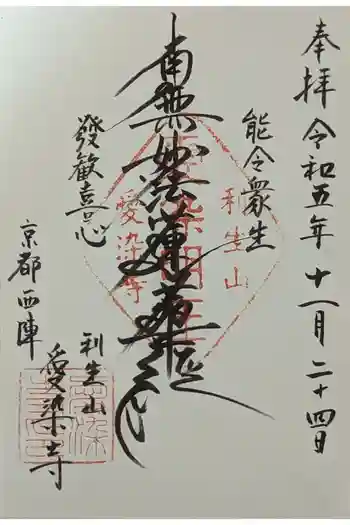 奉拝 令和五年 十一月 二十四日
能令衆生
南無妙法蓮華経
發歓喜心
京都西陣
利生山
愛染寺
利生山
愛染明王
愛染寺